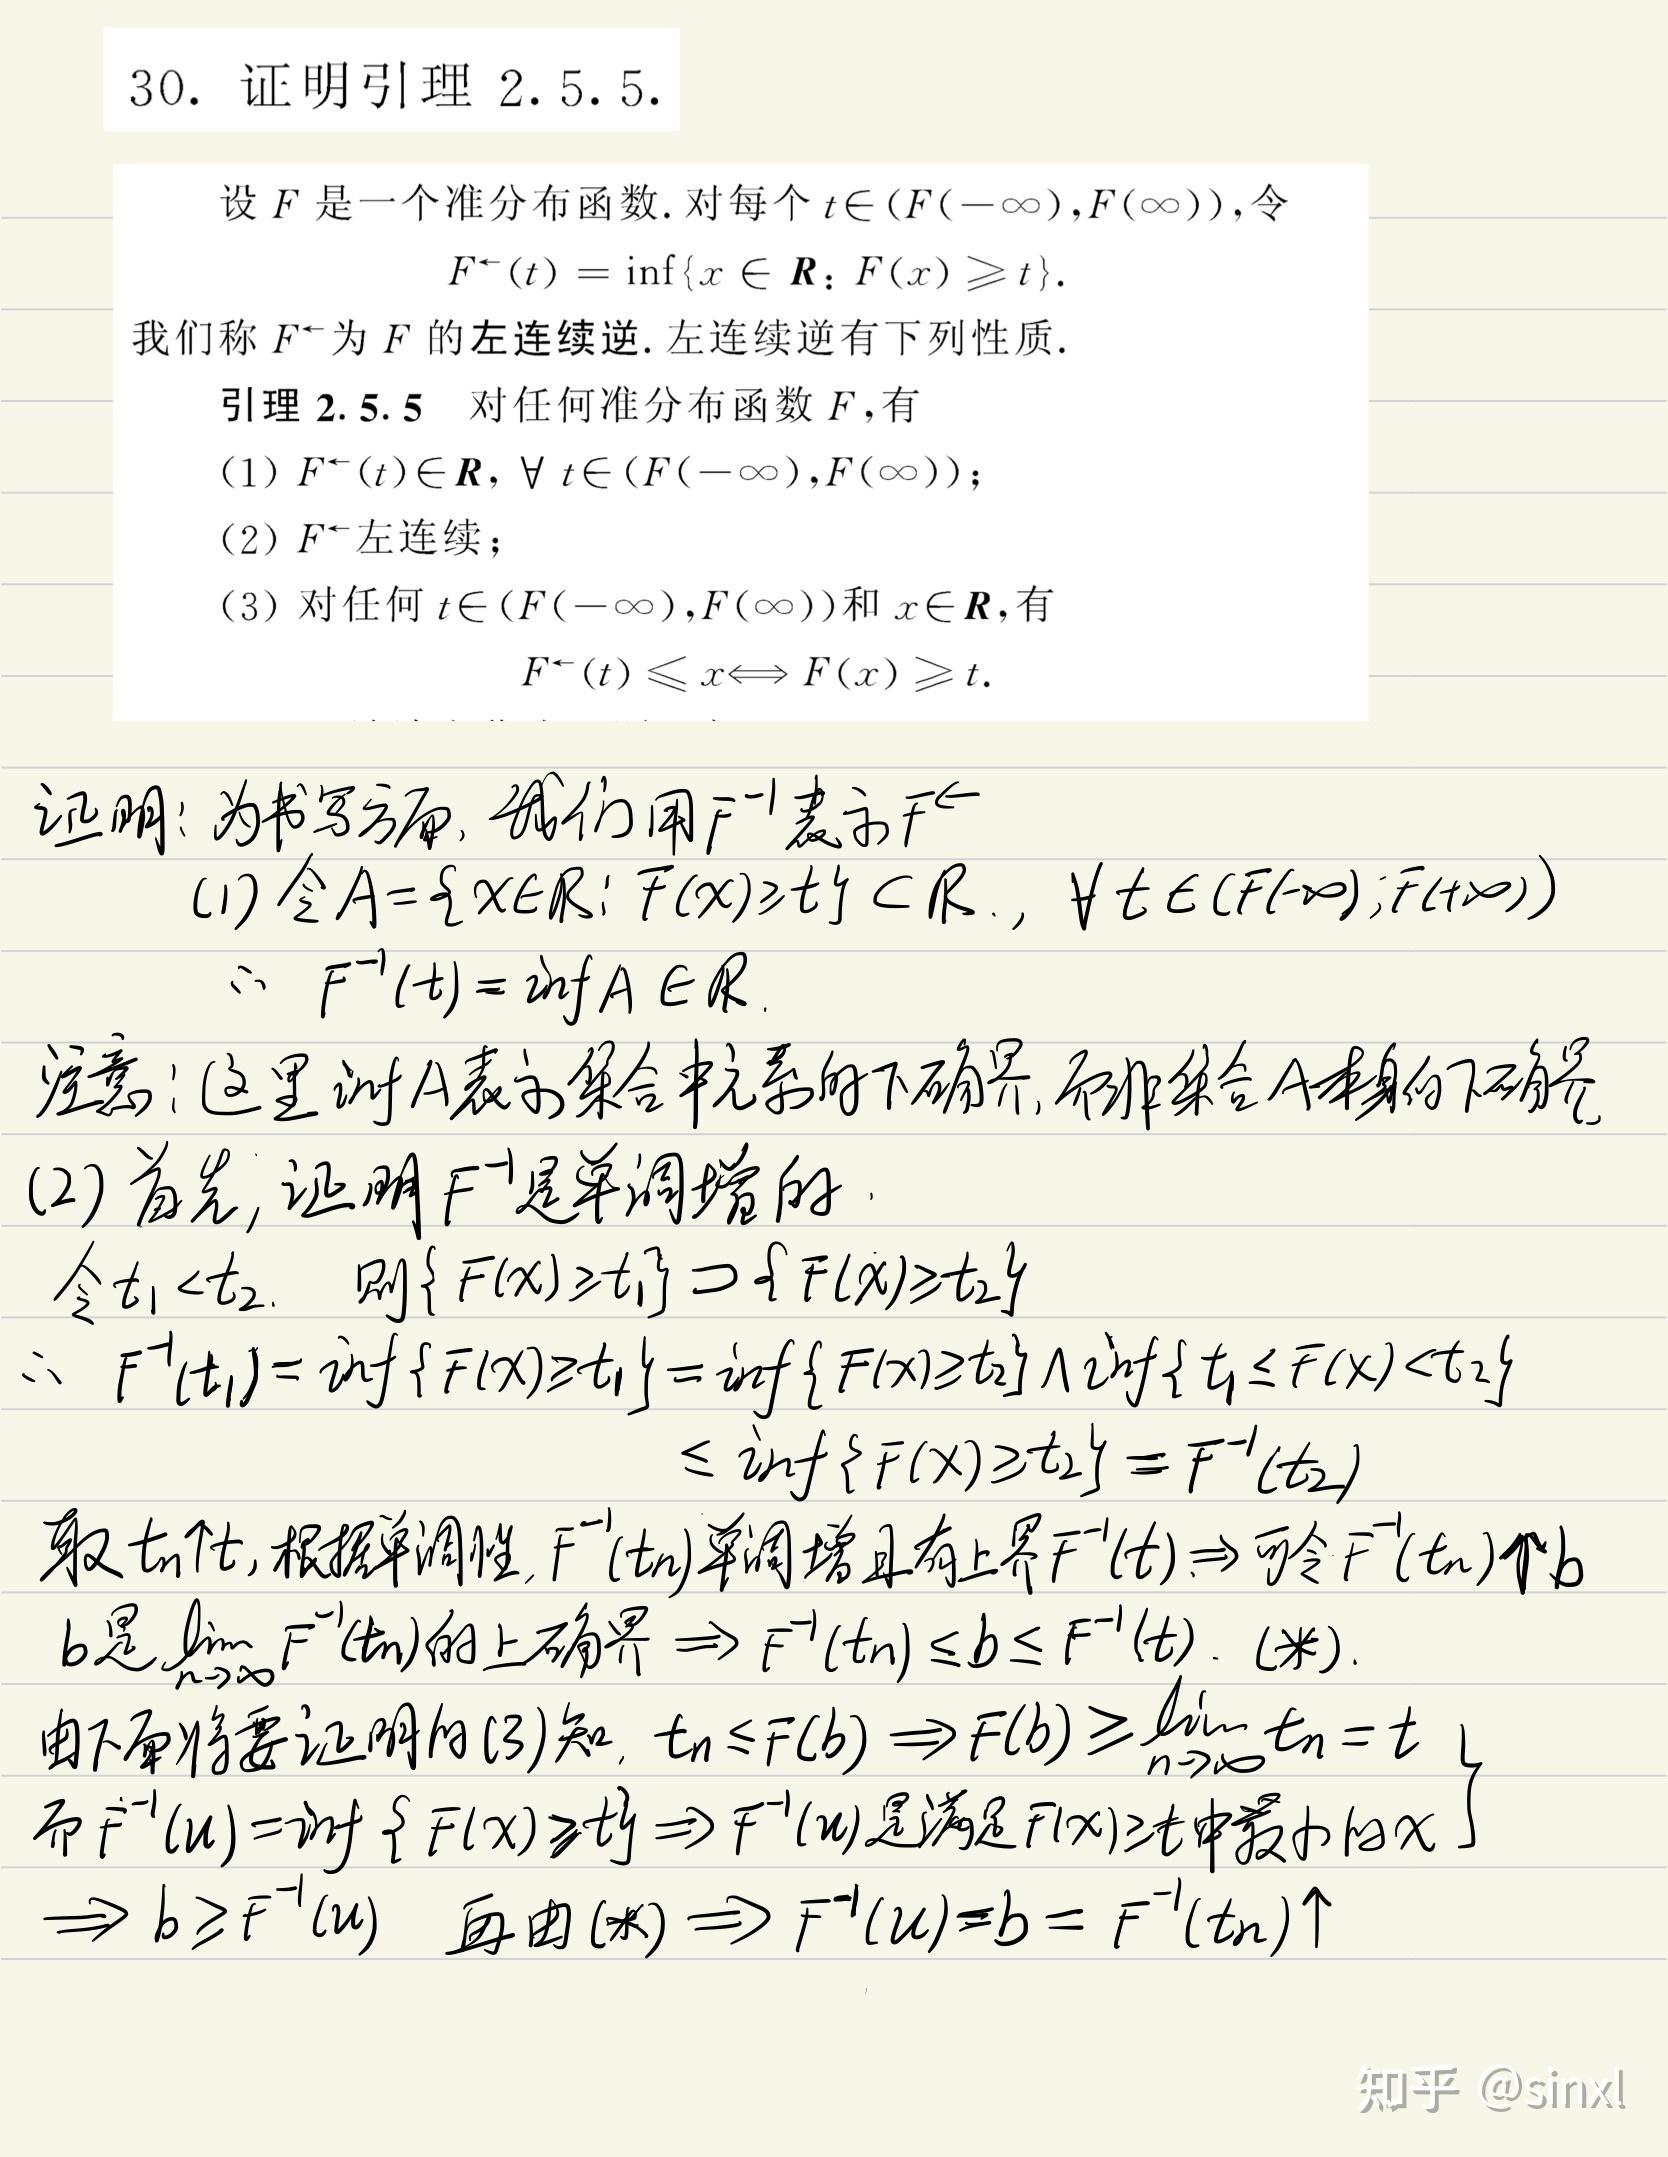 30. 证明引理 2.5.5.
设 F 是一个准分布函数. 对每个 t∈(F(−∞),F(∞)),令
F←(t) = inf{x ∈ R: F(x) ⩾ t}.
我们称 F←为 F 的左连续逆. 左连续逆有下列性质.
引理 2.5.5 对任何准分布函数 F,有
(1) F←(t)∈R, ∀ t∈(F(−∞),F(∞));
(2) F←左连续;
(3) 对任何 t∈(F(−∞),F(∞))和 x∈R,有
F←(t) ⩽ x⟺ F(x) ⩾ t.
证明: 为书写方面, 我们用F⁻¹表示F←
(1) 令A={x∈R: F(x)≥t} ⊂ R., ∀ t∈(F(-∞),F(+∞))
∴ F⁻¹(t)=inf A ∈R.
注意: 这里 inf A表示集合中元素的下确界, 而非集合A本身的下确界
(2) 首先, 证明F⁻¹是单调增的.
令t₁<t₂. 则{F(x)≥t₁} ⊃ {F(x)≥t₂}
∴ F⁻¹(t₁)= inf{F(x)≥t₁} = inf{F(x)≥t₂} ∧ inf{t₁≤F(x)<t₂}
≤ inf{F(x)≥t₂} = F⁻¹(t₂)
取 tn↑t, 根据单调性, F⁻¹(tn)单调增且有上界F⁻¹(t) ⇒ 可令F⁻¹(tn)↑b
b是 lim n→∞ F⁻¹(tn)的上确界 ⇒ F⁻¹(tn) ≤ b ≤ F⁻¹(t). (※).
由下面将要证明的(3)知, tn≤F(b) ⇒ F(b) ≥ lim n→∞ tn = t
而F⁻¹(u)=inf{F(x)≥t} ⇒ F⁻¹(u)是满足F(x)≥t中最小的x
⇒ b≥F⁻¹(u) 再由(※) ⇒ F⁻¹(u)=b = F⁻¹(tn)↑
知乎 @sinxl